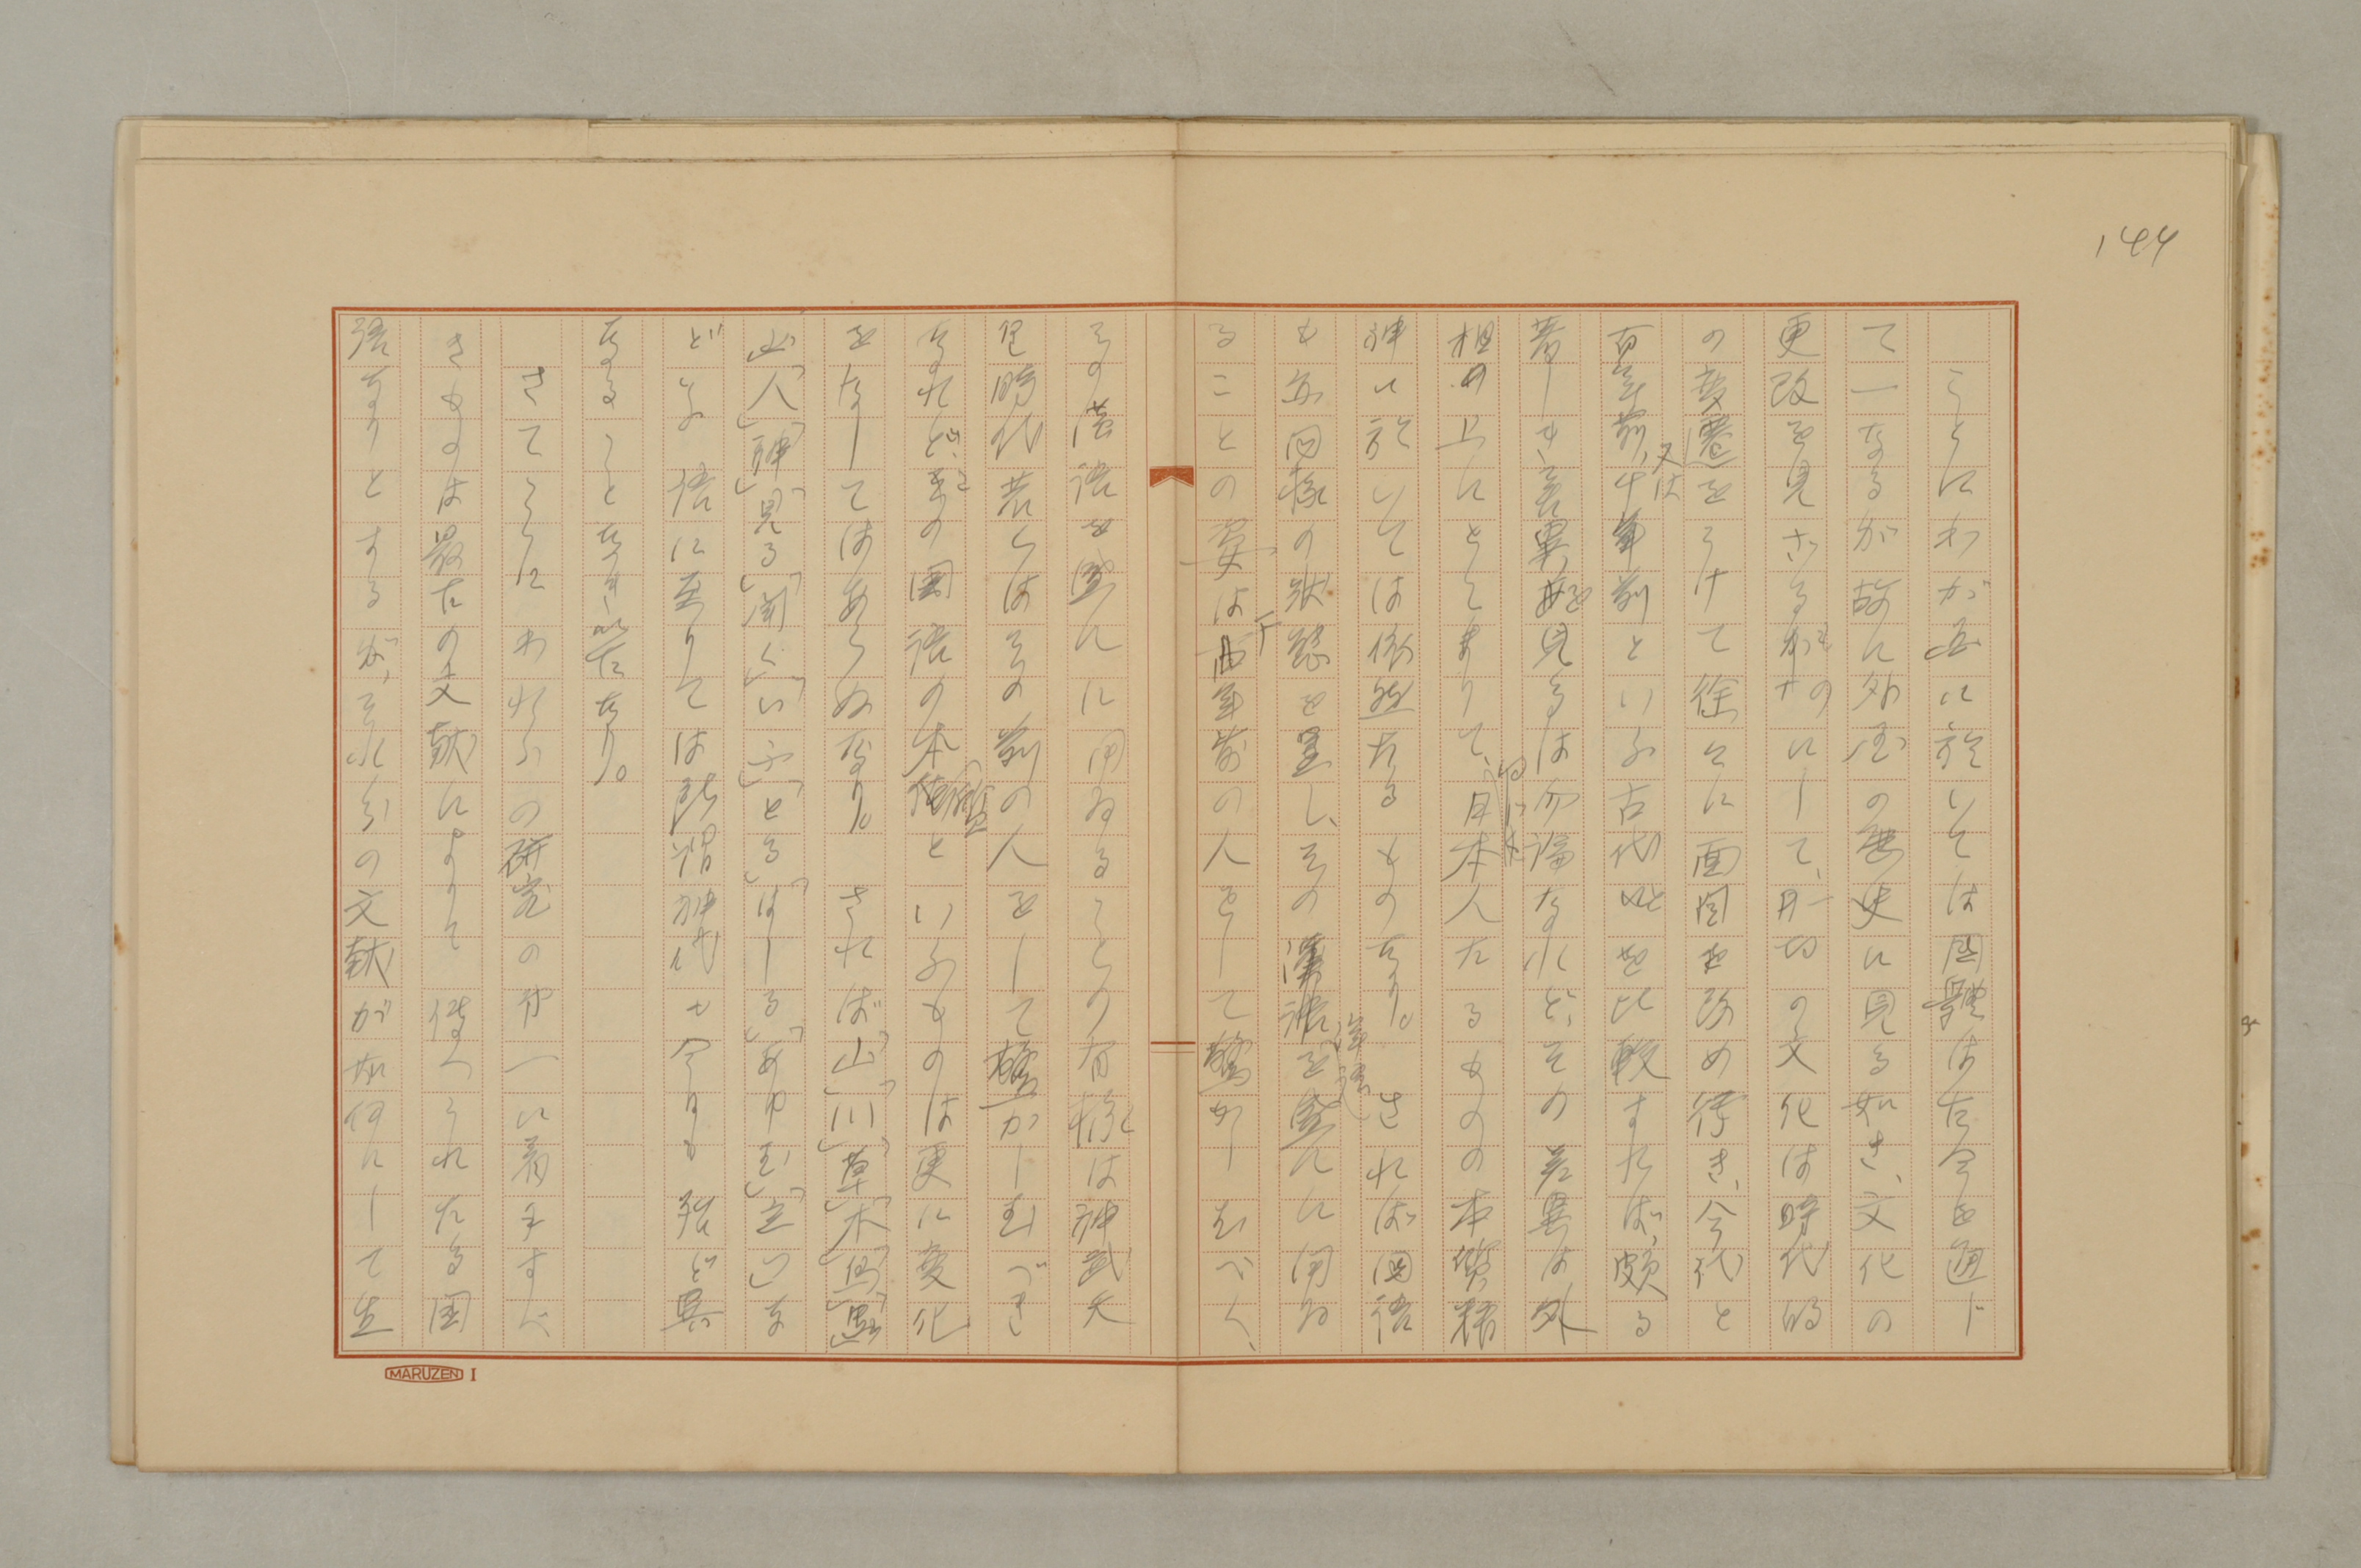 144
ことにわが国に於いては国體は古今を通じ
て一なるが故に外国の歴史に見る如き、文化の
更改を見ざるものにして、一切の文化は時代的
の変遷をうけて徐々に面目を改め行き、今代と
百年前、又は千年前といふ古代とを比較すれば、頗る
著しき差異を見るは勿論なれど、その差異は外
相の上にとゞまりて、日本人たるものの本質精
神に於いては依然たるものなり。されば国語
も亦同様の状態を呈し、その漢語を盛んに用ゐ
ることの姿は千年前の人をして驚かしむべく、
その漢語を盛んに用ゐることの有様は神武天
皇時代若くはその前の人をして驚かしむべき
なれど、その国語の本体といふものは更に変化
をなしてはあらぬなり。されば「山」「川」「草」「木」「鳥」「馬」
「人」「神」「見る」「聞く」「いふ」「とる」「はしる」「あゆむ」な
どいふ語に至りては所謂神代も今も殆ど異
なることなきが如きなり。
さてこゝにわれらの研究の第一に着手すべ
きものは最古の文献によりて伝へられたる国
語なりとするが、それらの文献が如何にして生
MARUZEN I